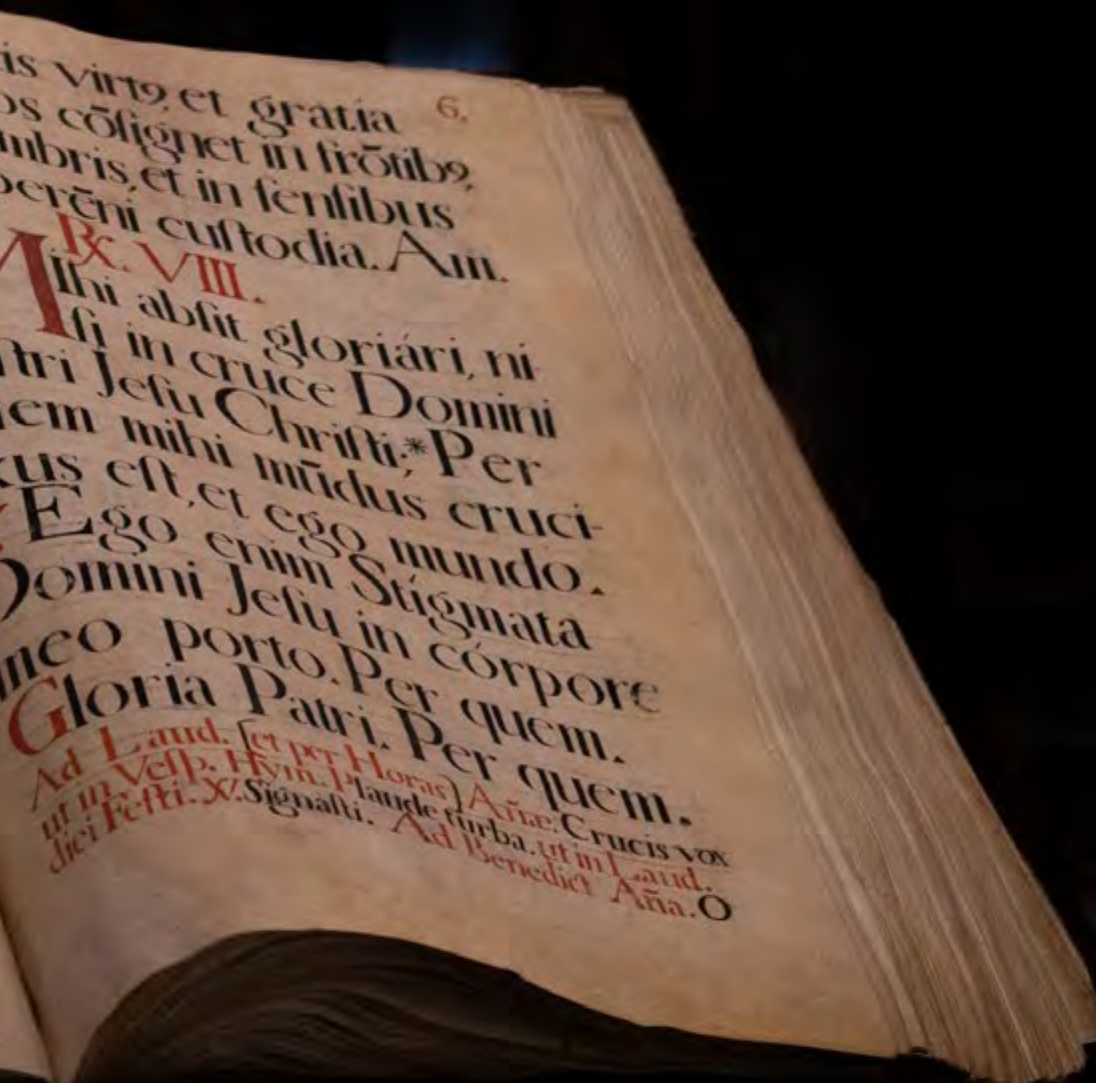 is virtꝯ, et gratia 6.
os cōſignet in frōtibꝯ,
mbris, et in ſenſibus
perēni cuſtodia. Am̄.
℟. VIII.
MIhi abſit gloriári, ni
ſi in cruce Domini
ſtri Jeſu Chriſti; * Per
em mihi mūdus cruci-
xus eſt, et ego mundo.
Ego enim Stígmata
Domini Jeſu in córpore
meo porto. Per quem.
Gloria Patri. Per quem.
Ad Laud. (et per Horas) Añæ. Crucis vox
ut in Veſp. Hym. Plaude turba. ut in Laud.
diei Feſti. ℣. Signaſti. Ad Benedict Aña. O